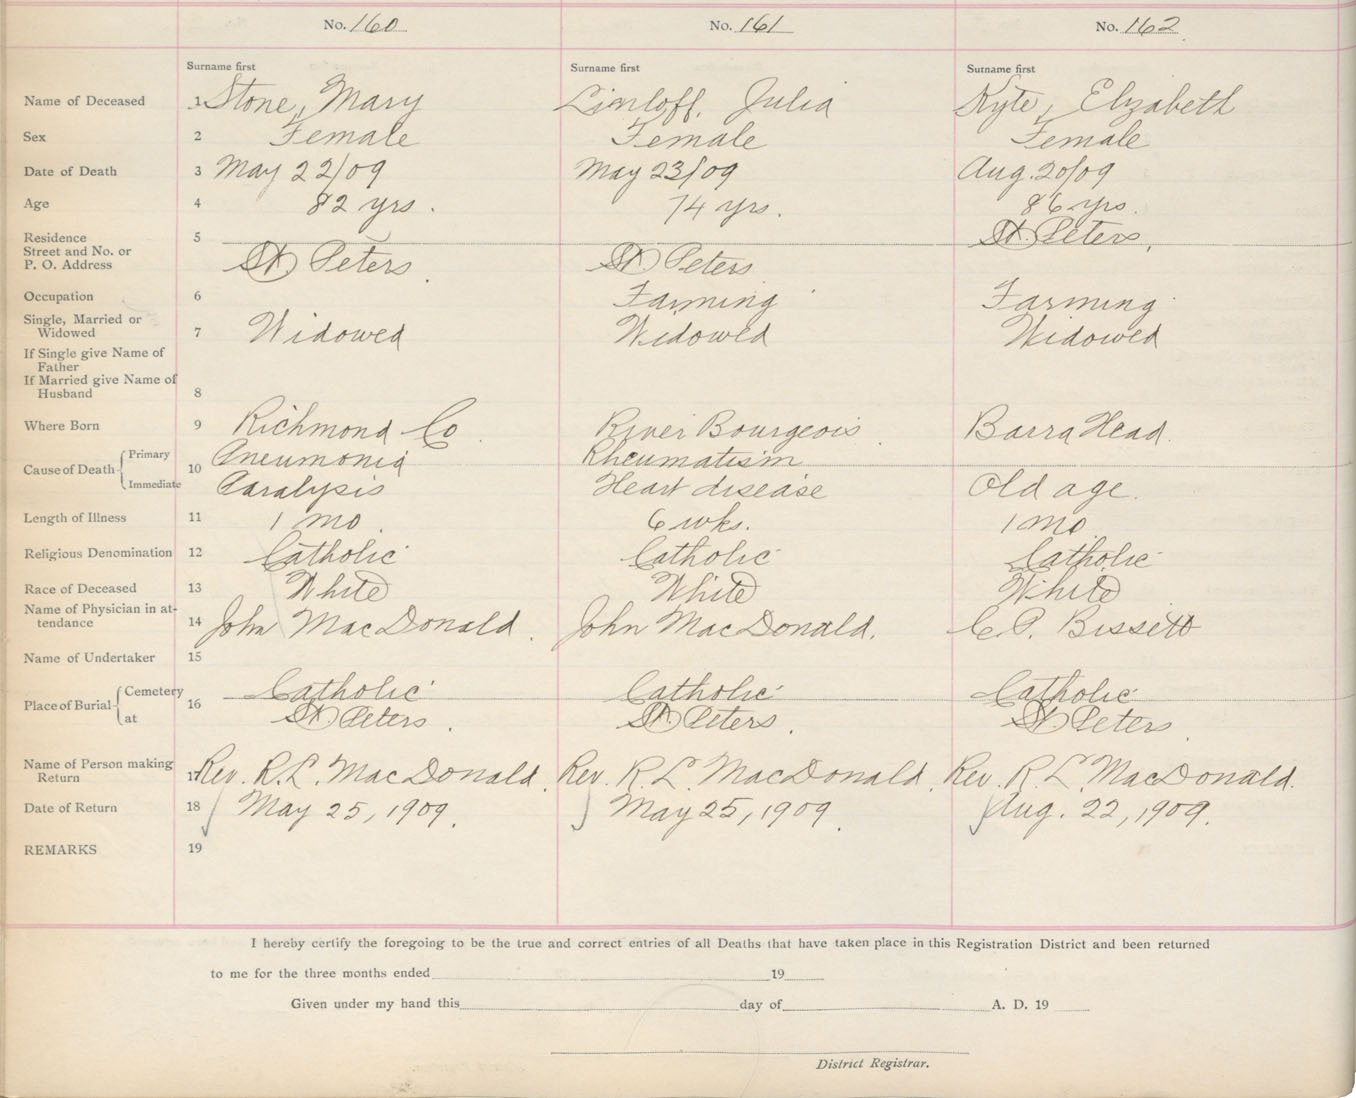 No. 160 No. 161 No. 162
Surname first Surname first Surname first
Name of Deceased 1 Stone, Mary Limloff, Julia Kyte, Elizabeth
Sex 2 Female Female Female
Date of Death 3 May 22/09 May 23/09 Aug. 20/09
Age 4 82 yrs. 74 yrs. 86 yrs.
Residence 5
Street and No. or
P. O. Address St Peters. St Peters St. Peters.
Occupation 6 Farming Farming
Single, Married or
Widowed 7 Widowed Widowed Widowed
If Single give Name of
Father
If Married give Name of
Husband 8
Where Born 9 Richmond Co. River Bourgeois. Barra Head.
Cause of Death Primary 10 Pneumonia Rheumatism
Immediate Paralysis Heart disease Old age.
Length of Illness 11 1 mo. 6 wks. 1 mo
Religious Denomination 12 Catholic Catholic Catholic
Race of Deceased 13 White White White
Name of Physician in at-
tendance 14 John MacDonald. John MacDonald. C. P. Bissett
Name of Undertaker 15
Place of Burial Cemetery 16 Catholic Catholic Catholic
at St. Peters. St. Peters. St. Peters.
Name of Person making
Return 17 Rev. R. L. MacDonald. Rev. R. L. MacDonald. Rev. R. L. MacDonald.
Date of Return 18 May 25, 1909. May 25, 1909. Aug. 22, 1909.
REMARKS 19
I hereby certify the foregoing to be the true and correct entries of all Deaths that have taken place in this Registration District and been returned
to me for the three months ended 19
Given under my hand this day of A. D. 19
District Registrar.